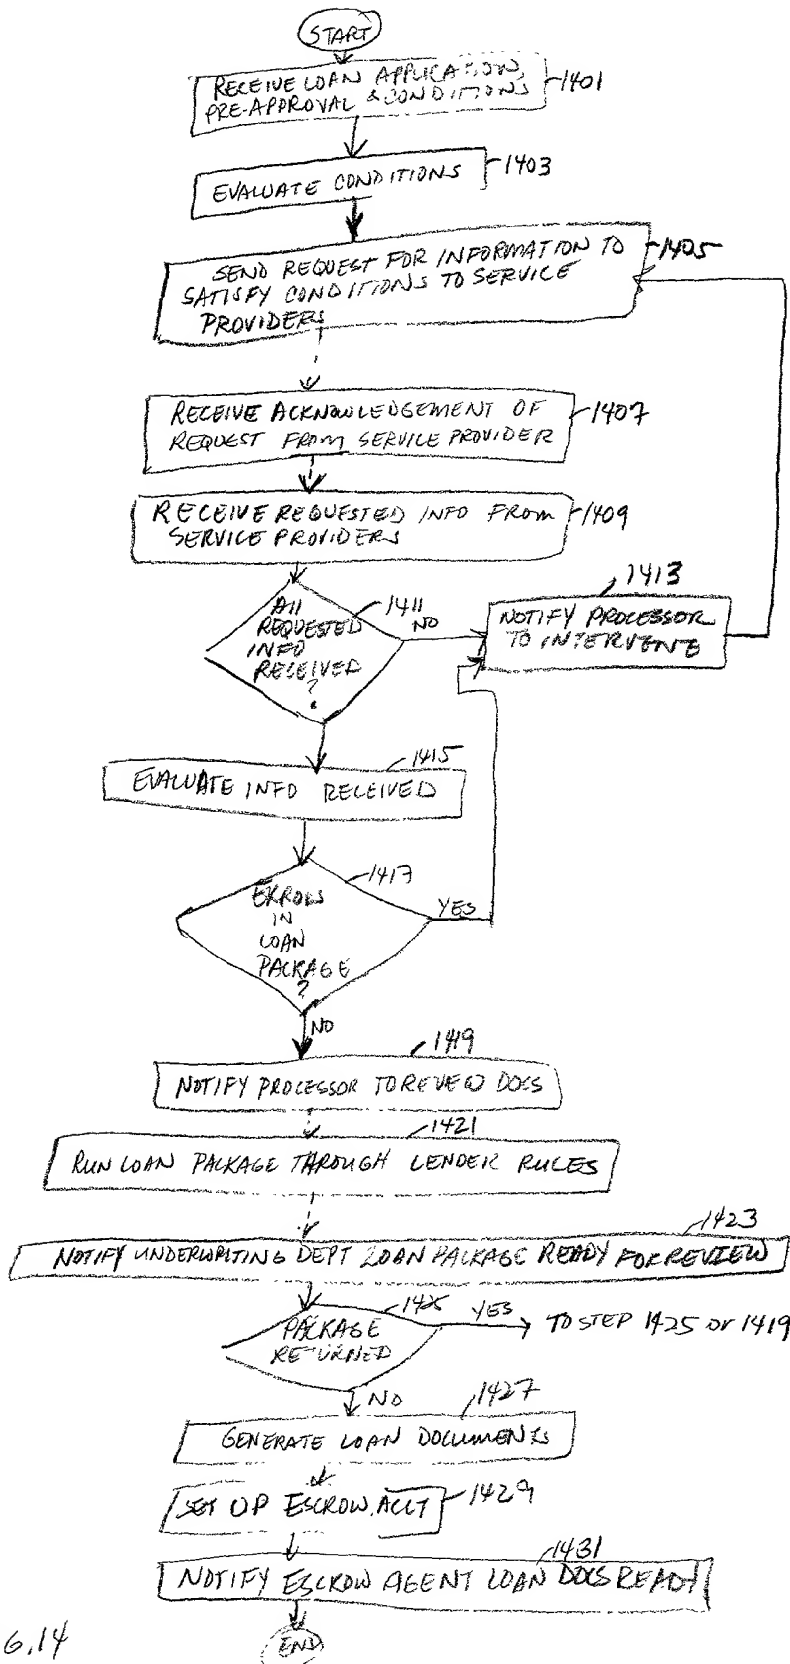 START
RECEIVE LOAN APPLICATION,
PRE-APPROVAL & CONDITIONS
1401
EVALUATE CONDITIONS
1403
SEND REQUEST FOR INFORMATION TO
SATISFY CONDITIONS TO SERVICE
PROVIDERS
1405
RECEIVE ACKNOWLEDGEMENT OF
REQUEST FROM SERVICE PROVIDER
1407
RECEIVE REQUESTED INFO FROM
SERVICE PROVIDERS
1409
All
REQUESTED
INFO
RECEIVED
?
1411
NO
1413
NOTIFY PROCESSOR
TO INTERVENE
1415
EVALUATE INFO RECEIVED
1417
ERRORS
IN
LOAN
PACKAGE
?
YES
NO
1419
NOTIFY PROCESSOR TO REVEW DOCS
1421
RUN LOAN PACKAGE THROUGH LENDER RULES
1423
NOTIFY UNDERWRITING DEPT LOAN PACKAGE READY FOR REVIEW
1425
PACKAGE
RETURNED
YES
TO STEP 1425 or 1419
NO
1427
GENERATE LOAN DOCUMENTS
SET UP ESCROW ACCT
1429
1431
NOTIFY ESCROW AGENT LOAN DOCS READY
END
6.14